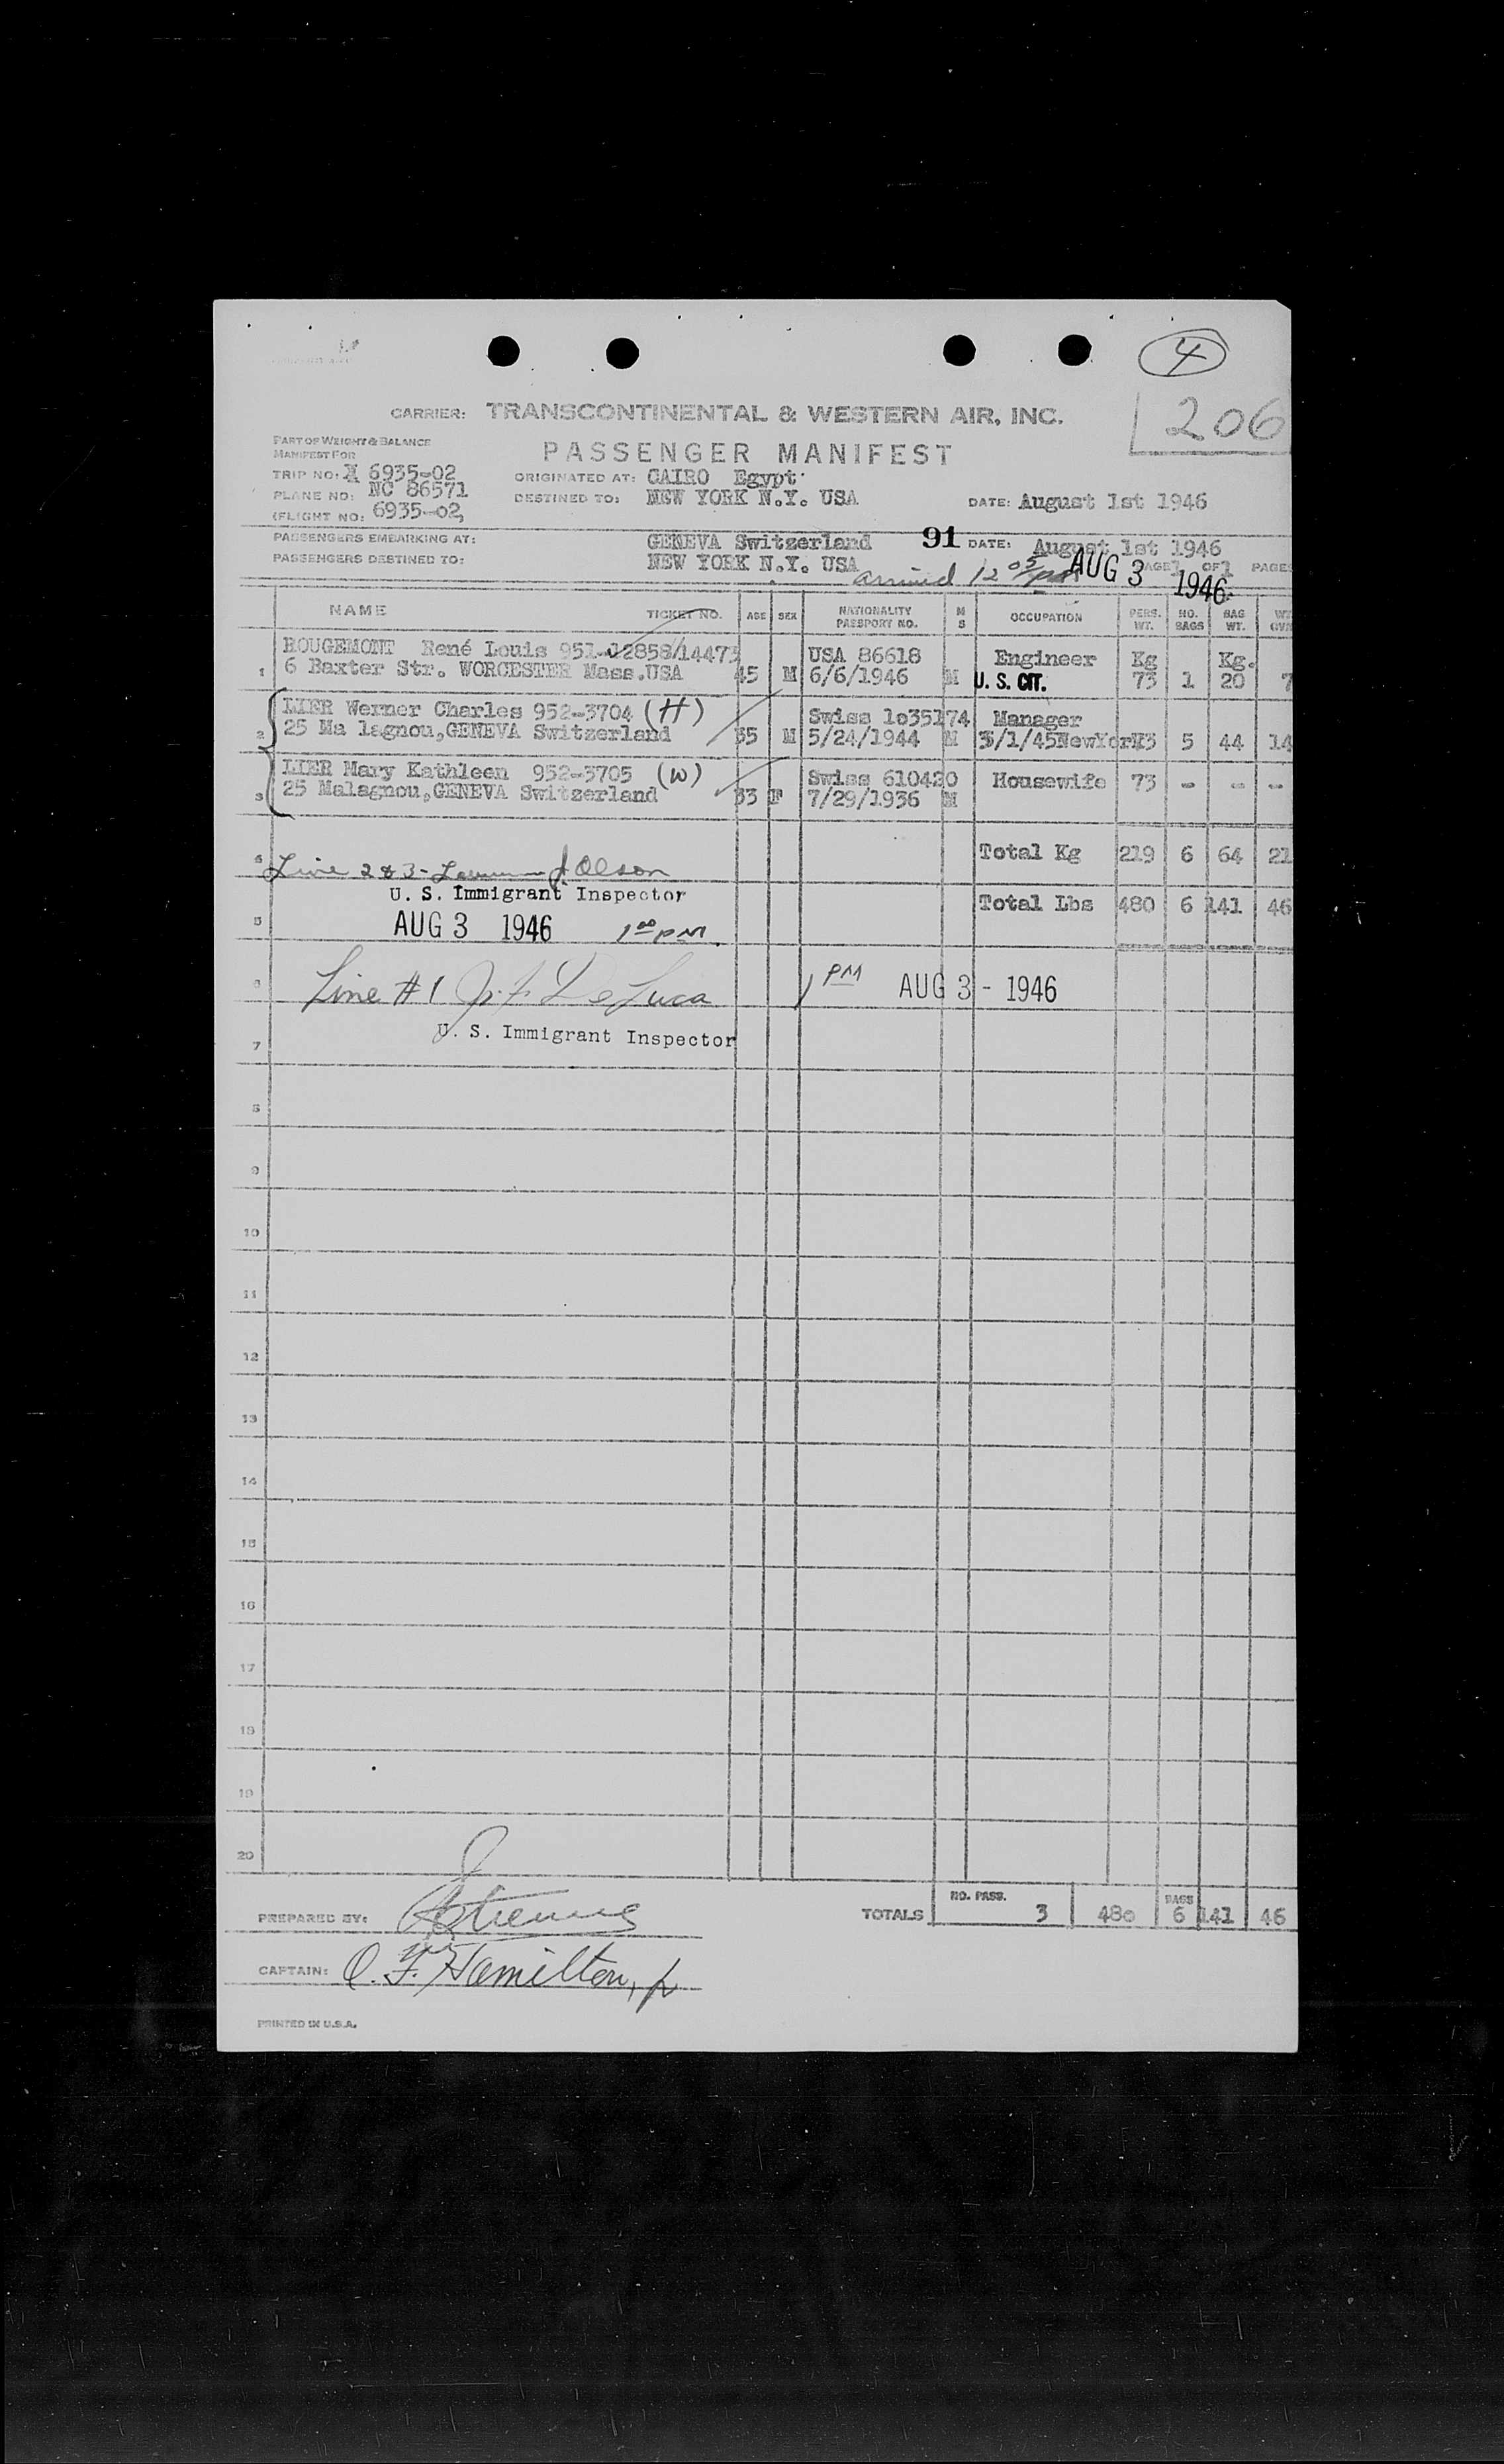 4
CARRIER: TRANSCONTINENTAL & WESTERN AIR, INC.
206
PART OF WEIGHT & BALANCE
MANIFEST FOR
PASSENGER MANIFEST
TRIP NO: X 6935-02
ORIGINATED AT: CAIRO Egypt
PLANE NO: NC 86571
DESTINED TO: NEW YORK N.Y. USA
DATE: August 1st 1946
(FLIGHT NO: 6935-02)
PASSENGERS EMBARKING AT: GENEVA Switzerland 91 DATE: August 1st 1946
PASSENGERS DESTINED TO: NEW YORK N.Y. USA
PAGE 1 OF 1 PAGES
arrived 12 05 pm AUG 3 1946
NAME TICKET NO. AGE SEX NATIONALITY PASSPORT NO. M S OCCUPATION PERS. WT. NO. BAGS BAG WT. WT
1 ROUGEMONT René Louis 951-12858/14473 USA 86618 Engineer Kg Kg.
6 Baxter Str. WORCESTER Mass.USA 45 M 6/6/1946 M U. S. CIT. 73 1 20 7
LIER Werner Charles 952-3704 (H) Swiss 1o35174 Manager
2 25 Ma lagnou,GENEVA Switzerland 35 M 5/24/1944 M 3/1/45NewYork 73 5 44 14
LIER Mary Kathleen 952-3705 (W) Swiss 610420 Housewife 73 - - -
3 25 Malagnou,GENEVA Switzerland 33 F 7/29/1936 M
Total Kg 219 6 64 21
4 Line 2 & 3 - J. Olson
U. S. Immigrant Inspector
Total Lbs 480 6 141 46
5 AUG 3 1946 1 00 PM.
6 Line #1 J. F. DeLuca 1 PM AUG 3 - 1946
U. S. Immigrant Inspector
7
8
9
10
11
12
13
14
15
16
17
18
19
20
PREPARED BY:
TOTALS NO. PASS. 3 480 BAGS 6 141 46
CAPTAIN: O. F. Hamilton, jr
PRINTED IN U.S.A.